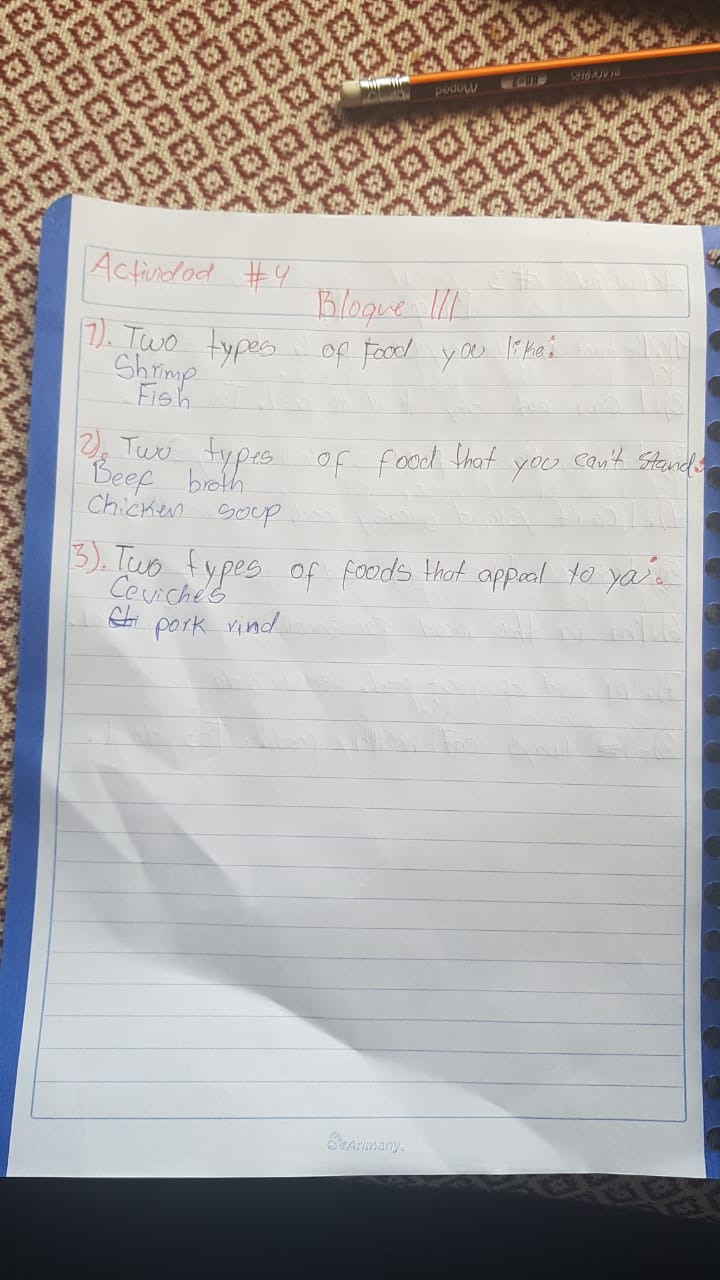 Maped
BLACK'PEPS
Actividad #4
Bloque III
1). Two types of Food you like:
Shrimp
Fish
2). Two types of food that you can't stand:
Beef broth
Chicken soup
3). Two types of foods that appeal to ya:
Ceviches
pork rind
Arimany.